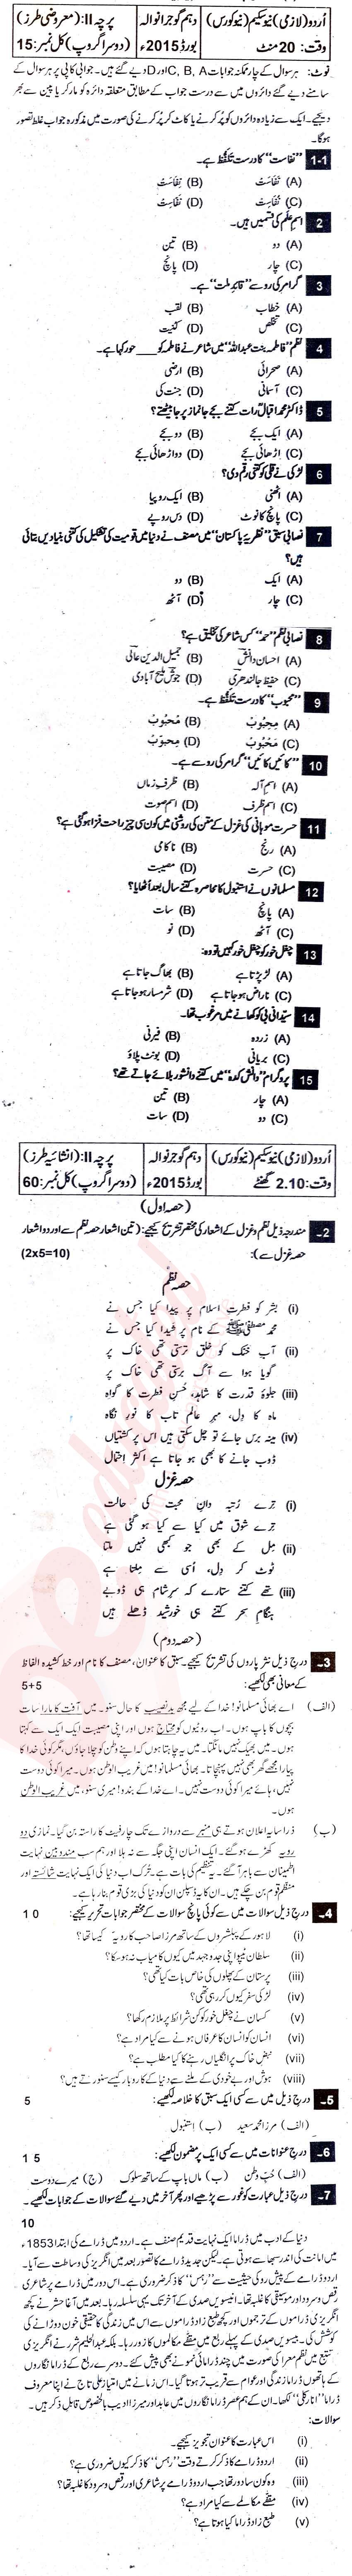 اُردو (لازمی) (نیو سکیم) (نیو کورس)
دہم گوجرانوالہ
پرچہ II: (معروضی طرز)
وقت: 20 منٹ
بورڈ 2015ء
(دوسرا گروپ) کل نمبر: 15
نوٹ: ہر سوال کے چار ممکنہ جوابات C, B, A اور D دیے گئے ہیں۔ جوابی کاپی پر ہر سوال کے
سامنے دیے گئے دائروں میں سے درست جواب کے مطابق متعلقہ دائرہ کو مارکر یا پین سے بھر
دیجیے۔ ایک سے زیادہ دائروں کو پُر کرنے یا کاٹ کر پُر کرنے کی صورت میں مذکورہ جواب غلط تصور
ہوگا۔
1-1 ”نفاست“ کا درست تلفّظ ہے۔
(A) نَفَاسَتْ (B) نِفَاسَتْ
(C) نُفَاسَتْ (D) نَفَاسِتْ
2 اسمِ عَلم کی قسمیں ہیں۔
(A) دو (B) تین
(C) چار (D) پانچ
3 گرامر کی رو سے ”قائدِ ملت“ ہے۔
(A) خطاب (B) لقب
(C) تخلص (D) کنیت
4 نظم ”فاطمہ بنت عبداللہ“ میں شاعر نے فاطمہ کو ____ حور کہا ہے۔
(A) صحرائی (B) ارضی
(C) آسمانی (D) جنت کی
5 ڈاکٹر محمد اقبالؒ رات کتنے بجے جانماز پر جا بیٹھتے؟
(A) ایک بجے (B) دو بجے
(C) اڑھائی بجے (D) دو اڑھائی بجے
6 لڑکی نے قلی کو کتنی رقم دی؟
(A) اٹھنی (B) ایک روپیا
(C) پانچ کا نوٹ (D) دس روپے
7 نصابی سبق ”نظریۂ پاکستان“ میں مصنف نے دنیا میں قومیت کی تشکیل کی کتنی بنیادیں بتائی
ہیں؟
(A) ایک (B) دو
(C) چار (D) آٹھ
8 نصابی نظم ”حمد“ کس شاعر کی تخلیق ہے؟
(A) احسان دانش (B) جمیل الدین عالی
(C) حفیظ جالندھری (D) جوش ملیح آبادی
9 ”محبوب“ کا درست تلفّظ ہے۔
(A) مِحبُوبْ (B) مَحبُوبْ
(C) مَحُبُوبْ (D) مِحبوّبْ
10 ”کائیں کائیں“ گرامر کی رو سے ہے۔
(A) اسمِ آلہ (B) ظرف زماں
(C) اسم ظرف (D) اسم صوت
11 حسرت موہانی کی غزل کے متن کی روشنی میں کون سی چیز راحت فزا ہو گئی ہے؟
(A) رنج (B) ناکامی
(C) حسرت (D) مصیبت
12 مسلمانوں نے استنبول کا محاصرہ کتنے سال بعد اُٹھایا؟
(A) پانچ (B) سات
(C) آٹھ (D) نو
13 چغل خور کو چغل خور کہیں تو وہ:
(A) لڑ پڑتا ہے (B) بھاگ جاتا ہے
(C) ناراض ہو جاتا ہے (D) شرمسار ہو جاتا ہے
14 سیّدانی بی کو کھانے میں مرغوب تھا۔
(A) زردہ (B) فیرنی
(C) بریانی (D) بونٹ پلاؤ
15 پروگرام ”دانش کدہ“ میں کتنے دانشور بلائے جاتے تھے؟
(A) چار (B) تین
(C) دو (D) سات
اُردو (لازمی) (نیو سکیم) (نیو کورس)
دہم گوجرانوالہ
پرچہ II: (انشائیہ طرز)
وقت: 2.10 گھنٹے
بورڈ 2015ء
(دوسرا گروپ) کل نمبر: 60
(حصہ اول)
2- مندرجہ ذیل نظم و غزل کے اشعار کی مختصر تشریح کیجیے: (تین اشعار حصہ نظم سے اور دو اشعار
حصہ غزل سے): (2x5=10)
حصہ نظم
(i) بشر کو فطرتِ اسلام پر پیدا کیا جس نے
محمد مصطفیٰ ﷺ کے نام پر شیدا کیا جس نے
(ii) آب خنک کو خلق ترستی تھی خاک پر
گویا ہوا سے آگ برستی تھی خاک پر
(iii) جلوۂ قدرت کا شاہد، حُسنِ فطرت کا گواہ
ماہ کا دِل، مہرِ عالم تاب کا نورِ نگاہ
(iv) مینہ برس جائے تو چل سکتی ہیں اس پر کشتیاں
ڈوب جانے کا بھی ہو جاتا ہے اکثر احتمال
حصہ غزل
(i) ترے رُتبہ دانِ محبت کی حالت
ترے شوق میں کیا سے کیا ہو گئی ہے
(ii) مِل کے بھی جو کبھی نہیں ملتا
ٹوٹ کر دِل، اُسی سے مِلتا ہے
(iii) تھے کتنے ستارے کہ سرِشام ہی ڈوبے
ہنگامِ سحر کتنے ہی خورشید ڈھلے ہیں
(حصہ دوم)
3- درج ذیل نثر پاروں کی تشریح کیجیے۔ سبق کا عنوان، مصنف کا نام اور خط کشیدہ الفاظ
کے معانی بھی لکھیے: 5+5
(الف) اے بھائی مسلمانو! خدا کے لیے مجھ بدنصیب کا حال سنو۔ میں آفت کا مارا سات
بچوں کا باپ ہوں۔ اب روٹیوں کو محتاج ہوں اور اپنی مصیبت ایک ایک سے کہتا
ہوں۔ میں بھیک نہیں مانگتا۔ میں یہ چاہتا ہوں کہ اپنے وطن کو چلا جاؤں، مگر کوئی خدا کا
پیارا مجھے گھر بھی نہیں پہنچاتا۔ بھائی مسلمانو! میں غریب الوطن ہوں۔ میرا کوئی دوست
نہیں، ہائے میرا کوئی دوست نہیں۔ اے خدا کے بندو! میری سنو، میں غریب الوطن
ہوں۔
(ب) ذرا سا یہ اعلان ہوتے ہی منبر سے دروازے تک چار فیٹ کا راستہ بن گیا۔ نمازی دو
رویہ کھڑے ہو گئے۔ ایک انسان اپنی جگہ سے نہ ہلا اور ہم سب مندوبین نہایت
اطمینان سے باہر آ گئے۔ یہ تنظیم کی بات ہے۔ تُرک اب دنیا کی ایک نہایت شائستہ اور
منظم قوم بن چکے ہیں۔ ان کا یہ ڈسپلن ان کو دنیا کی بڑی قوم بنا رہا ہے۔
4- درج ذیل سوالات میں سے کوئی پانچ سوالات کے مختصر جوابات تحریر کیجیے: 10
(i) لاہور کے پبلشروں کے ساتھ مرزا صاحب کا رویہ کیسا تھا؟
(ii) سلطان ٹیپو اپنی جدوجہد میں کیوں کامیاب نہ ہو سکا؟
(iii) پرستان کے پھلوں کی خاص بات کیا تھی؟
(iv) لڑکی سفر کیوں کر رہی تھی؟
(v) کسان نے چغل خور کو کن شرائط پر ملازم رکھا؟
(vi) انسان کو انسان کا عرفاں ہونے سے کیا مراد ہے؟
(vii) نبضِ خاک پر انگلیاں رہنے کا کیا مطلب ہے؟
(viii) ہوش اور بے خودی کے ملنے سے دنیا کے کاروبار کیسے سنورتے ہیں؟
5- درج ذیل میں سے کسی ایک سبق کا خلاصہ لکھیے: 5
(الف) مرزا محمد سعید (ب) استنبول
6- درج عنوانات میں سے کسی ایک پر مضمون لکھیے: 15
(الف) حُبّ وطن (ب) ماں باپ کے ساتھ سلوک (ج) میرے دوست
7- درج ذیل عبارت کو غور سے پڑھیے اور پھر آخر میں دیے گئے سوالات کے جوابات لکھیے۔
10
دنیا کے ادب میں ڈراما ایک نہایت قدیم صنف ہے۔ اردو میں ڈرامے کی ابتدا 1853ء
میں امانت کی اندر سبھا سے ہوتی ہے لیکن جدید ڈرامے کا تصور بعد میں انگریز کی وساطت سے آیا۔
اردو ڈرامے کے پیش رو کی حیثیت سے ”رہس“ کا ذکر ضروری ہے۔ اس دور میں ڈرامے پر شاعری
رقص و سرود اور موسیقی کا غلبہ تھا۔ انیسویں صدی کے آخر تک یہی سلسلہ رہا۔ بعد میں آغا حشر نے کچھ
انگریزی ڈراموں کے ترجموں اور کچھ طبع زاد ڈراموں سے اس میں زندگی کا حقیقی خون دوڑانے کی
کوشش کی۔ بیسویں صدی کے پہلے ربع میں مقفّٰے مکالموں کا زور رہا۔ بلکہ عبدالحلیم شرر نے انگریزی
تتبع میں نظم معرا کی صورت میں چند ڈرامائی نمونے بھی پیش کئے۔ دوسرے ربع کے ڈراما نگاروں
کے ہاتھوں ڈراما زندگی اور عوام سے قریب تر ہوتا گیا۔ اس زمانے میں امتیاز علی تاج نے اپنا معروف
ڈراما ”انار کلی“ لکھا۔ ان کے ہم عصر ڈراما نگاروں میں عابد اور میرزا ادیب بالخصوص قابلِ ذکر ہیں۔
سوالات:
(i) اس عبارت کا عنوان تجویز کیجیے۔
(ii) اردو ڈرامے کا ذکر کرتے وقت ”رہس“ کا ذکر کیوں ضروری ہے؟
(iii) وہ کون سا دور تھا جب اردو ڈرامے پر شاعری اور رقص و سرود کا غلبہ تھا؟
(iv) مقفّٰے مکالمے سے کیا مراد ہے؟
(v) طبع زاد ڈراما کیا ہوتا ہے؟